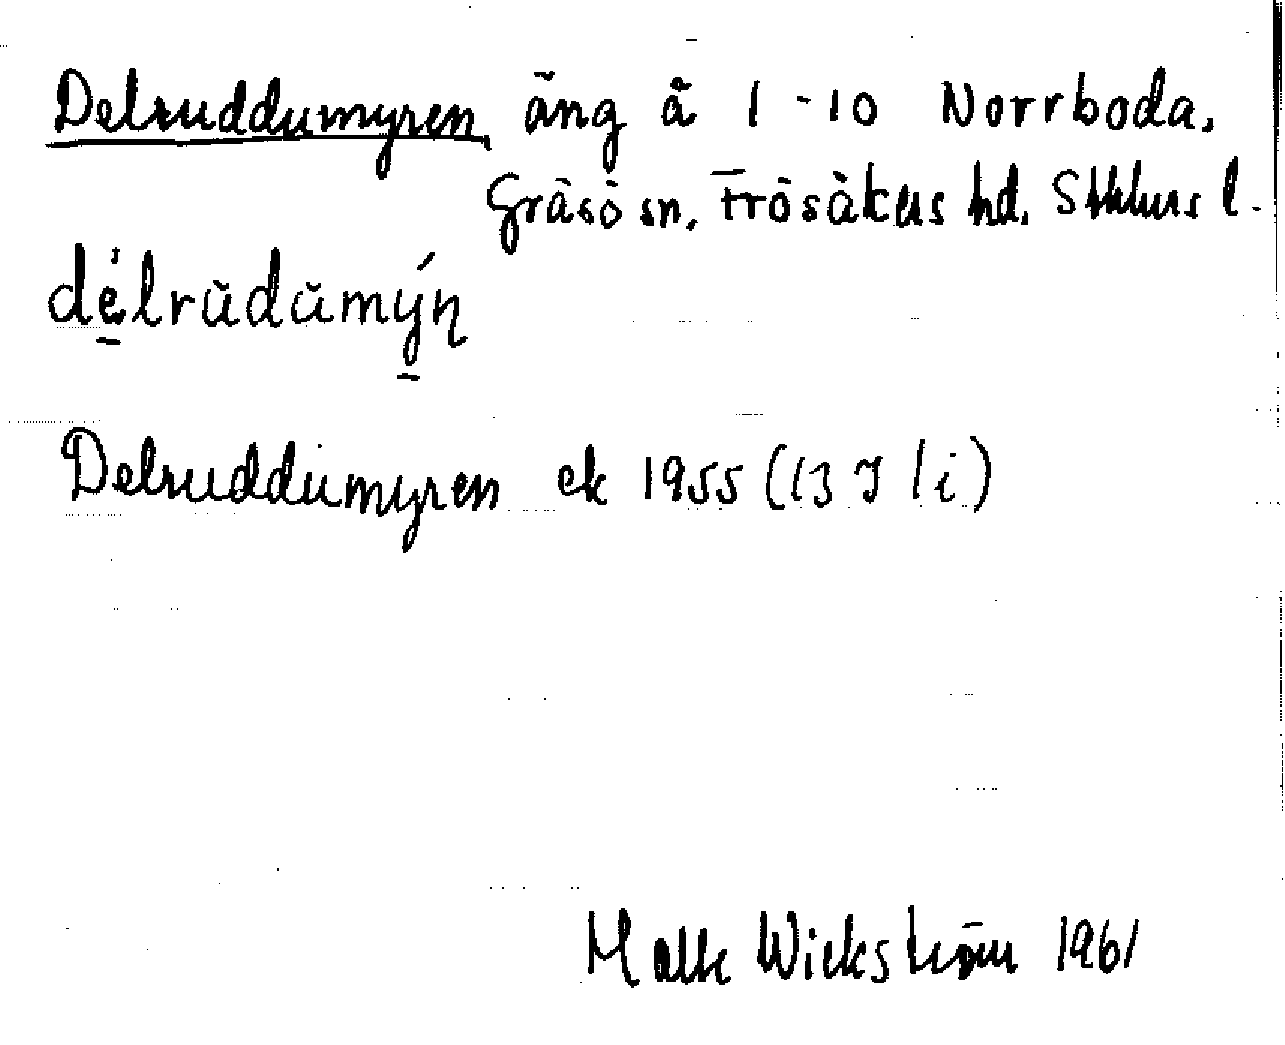 Delruddumyren, äng å 1-10 Norrboda,
Gräsö sn. Frösåkers hd. Sthlms l.
délrŭdŭmýn̨
Delruddumyren ek 1955 (13 I 1 i)
Wickström 1961